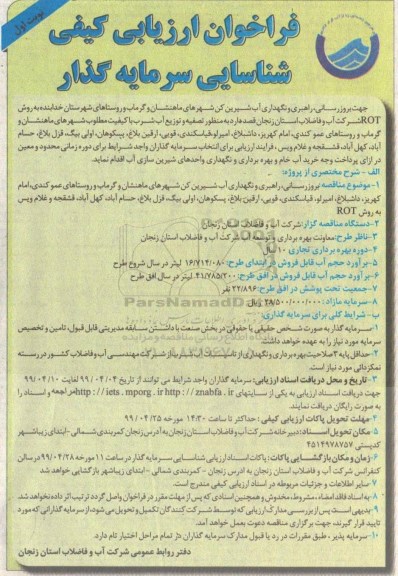 نوبت اول
فراخوان ارزیابی کیفی
شناسایی سرمایه گذار
جهت بروزرسانی، راهبری و نگهداری آب شیرین کن شهرهای ماهنشان و گرماب و روستاهای شهرستان خدابنده به روش
ROT شرکت آب و فاضلاب استان زنجان قصد دارد به منظور تصفیه و توزیع آب شرب با کیفیت مطلوب شهرهای ماهنشان و
گرماب و روستاهای عمو کندی، امام کهریز، داشبلاغ، امیرلو، قیاسکندی، قویی، ارقین بلاغ، پسکوهان، اولی بیگ، قزل بلاغ، حسام
آباد، کهل آباد، قشقجه و غلام ویس، فرایند ارزیابی برای انتخاب سرمایه گذاران واجد شرایط برای دوره زمانی محدود و معین
در ازای پرداخت وجه خرید آب خام و بهره برداری و نگهداری واحدهای شیرین سازی آب اقدام نماید.
الف - شرح مختصری از پروژه:
۱-موضوع مناقصه: بروزرسانی، راهبری و نگهداری آب شیرین کن شهرهای ماهنشان و گرماب و روستاهای عمو کندی، امام
کهریز، داشبلاغ، امیرلو، قیاسکندی، قویی، ارقین بلاغ، پسکوهان، اولی بیگ، قزل بلاغ، حسام آباد، کهل آباد، قشقجه و غلام ویس
به روش ROT
۲-دستگاه مناقصه گزار: شرکت آب و فاضلاب استان زنجان
۳-ناظر طرح: معاونت بهره برداری و توسعه آب شرکت آب و فاضلاب استان زنجان
۴-دوره بهره برداری تجاری: ۱۰ سال
۵-برآورد حجم آب قابل فروش در ابتدای طرح: ۱۶/۷۱۴/۰۸۰ لیتر در سال شروع طرح
۶-برآورد حجم آب قابل فروش در افق طرح: ۴۱/۷۸۵/۲۰۰ لیتر در سال افق طرح
۷-جمعیت تحت پوشش در افق طرح: ۲۲/۸۹۶ نفر
۸-سرمایه مازاد: ۳۸/۵۰۰/۰۰۰/۰۰۰ ریال
ب-شرایط کلی برای سرمایه گذاری:
۱-سرمایه گذار به صورت شخص حقیقی یا حقوقی در بخش صنعت با داشتن مسابقه مدیریتی قابل قبول، تامین و تخصیص
سرمایه مورد نیاز را به عهده خواهد داشت.
۲-حداقل پایه ۳ صلاحیت بهره برداری و نگهداری از تاسیسات آب شرب از شرکت مهندسی آب و فاضلاب کشور در رسته
نمکزدائی مورد نیاز است.
۳-تاریخ و محل دریافت اسناد ارزیابی: سرمایه گذاران واجد شرایط می توانند از تاریخ ۹۹/۰۴/۰۴ لغایت ۹۹/۰۴/۱۰
جهت دریافت اسناد ارزیابی به یکی از سایتهای http://iets.mporg.ir http://znabfa.ir مراجعه و اسناد را
به صورت رایگان دریافت نمایند.
۴-مهلت تحویل پاکات ارزیابی کیفی: حداکثر تا ساعت ۱۴:۳۰ مورخه ۹۹/۰۴/۲۵
۵-مکان تحویل اسناد: دبیرخانه شرکت آب و فاضلاب استان زنجان به آدرس زنجان کمربندی شمالی-ابتدای زیباشهر
کدپستی ۴۵۱۴۹۷۸۷۵۷
۶-زمان و مکان بازگشایی پاکات: پاکات اسناد ارزیابی شناسایی سرمایه گذار در ساعت ۱۱ مورخه ۹۹/۰۴/۲۸ در سالن
کنفرانس شرکت آب و فاضلاب استان زنجان به آدرس زنجان - کمربندی شمالی -ابتدای زیباشهر بازگشایی خواهد شد
۷-سایر اطلاعات و جزئیات مربوطه در اسناد ارزیابی کیفی مندرج است.
۸-به اسناد فاقد امضاء، مشروط، مخدوش و همچنین اسنادی که پس از مهلت مقرر در فراخوان واصل گردد ترتیب اثر داده نخواهد شد.
۹-بدیهی است پس از بررسی مدارک ارزیابی که توسط شرکت کنندگان تکمیل و تحویل می شود، از سرمایه گذارانی که مورد
تایید قرار گیرند، جهت برگزاری مناقصه دعوت بعمل خواهد آمد.
۱۰-سرمایه پذیر، طبق مقررات در رد یا قبول مدارک سرمایه گذاران در تمام مراحل اختیار تام دارد.
دفتر روابط عمومی شرکت آب و فاضلاب استان زنجان